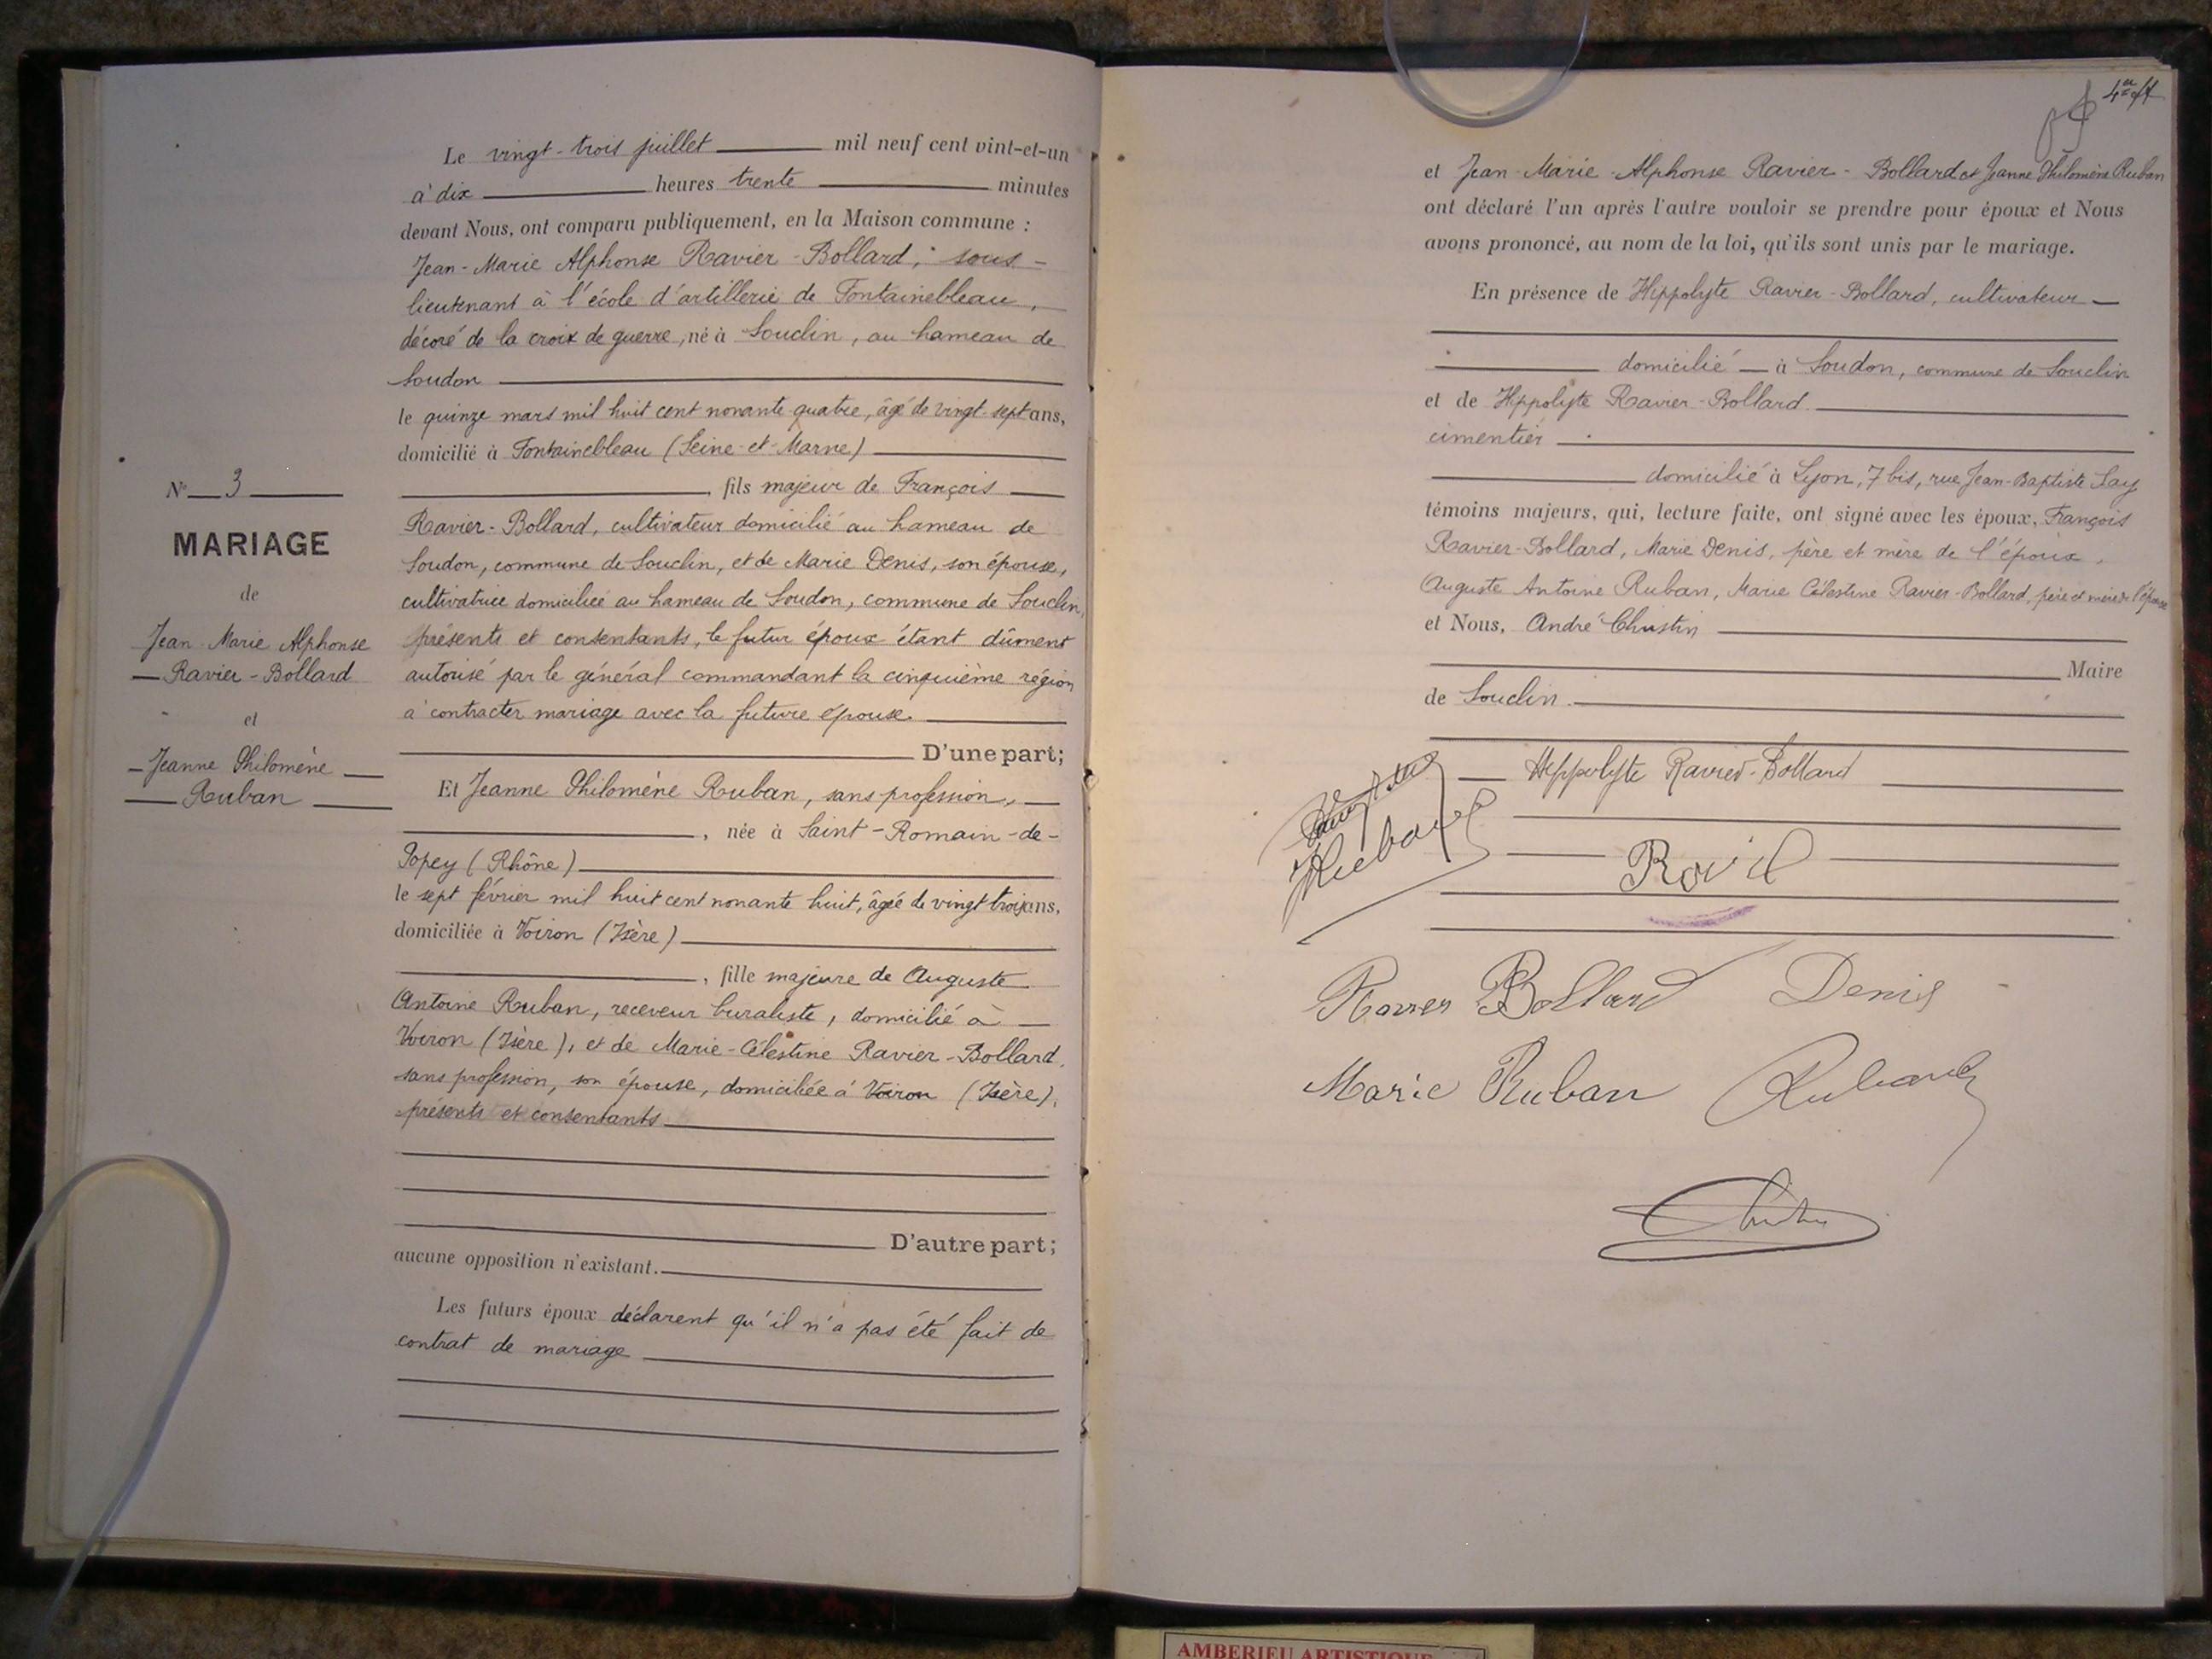 N° 3
MARIAGE
de
Jean-Marie Alphonse
Ravier-Bollard
et
Jeanne Philomène
Ruban
Le vingt-trois juillet mil neuf cent vint-et-un
à dix heures trente minutes
devant Nous, ont comparu publiquement, en la Maison commune :
Jean-Marie Alphonse Ravier-Bollard, sous-
lieutenant à l'école d'artillerie de Fontainebleau,
décoré de la croix de guerre, né à Souclin, au hameau de
Soudon
le quinze mars mil huit cent nonante-quatre, âgé de vingt-sept ans,
domicilié à Fontainebleau (Seine-et-Marne)
, fils majeur de François
Ravier-Bollard, cultivateur domicilié au hameau de
Soudon, commune de Souclin, et de Marie Denis, son épouse,
cultivatrice domiciliée au hameau de Soudon, commune de Souclin,
présents et consentants, le futur époux étant dûment
autorisé par le général commandant la cinquième région
à contracter mariage avec la future épouse.
D'une part;
Et Jeanne Philomène Ruban, sans profession,
, née à Saint-Romain-de-
Popey (Rhône)
le sept février mil huit cent nonante huit, âgée de vingt trois ans,
domiciliée à Voiron (Isère)
, fille majeure de Auguste
Antoine Ruban, receveur buraliste, domicilié à
Voiron (Isère), et de Marie-Célestine Ravier-Bollard,
sans profession, son épouse, domiciliée à Voiron (Isère),
présents et consentants
D'autre part;
aucune opposition n'existant.
Les futurs époux déclarent qu'il n'a pas été fait de
contrat de mariage
et Jean-Marie-Alphonse Ravier-Bollard et Jeanne Philomène Ruban
ont déclaré l'un après l'autre vouloir se prendre pour époux et Nous
avons prononcé, au nom de la loi, qu'ils sont unis par le mariage.
En présence de Hippolyte Ravier-Bollard, cultivateur
domicilié à Soudon, commune de Souclin
et de Hippolyte Ravier-Bollard
cimentier
domicilié à Lyon, 7 bis, rue Jean-Baptiste Say
témoins majeurs, qui, lecture faite, ont signé avec les époux, François
Ravier-Bollard, Marie Denis, père et mère de l'époux,
Auguste Antoine Ruban, Marie Célestine Ravier-Bollard, père et mère de l'épouse
et Nous, André Christin
Maire
de Souclin
Hippolyte Ravier-Bollard
Ravier Bollard Denis
Marie Ruban
AMBERIEU ARTISTIQUE